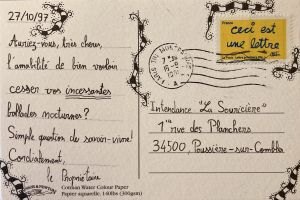 27/10/97
Auriez-vous, très chers,
l'amabilité de bien vouloir
cesser vos incessantes
ballades nocturnes?
Simple question de savoir-vivre!
Cordialement,
le Propriétaire
Cotman Water Colour Paper
Papier aquarelle, 140lbs (300gsm)
France
ceci est
une lettre
Intendance "La Souricière"
1ère rue des Planchers
34500, Poussière-sur-Combles